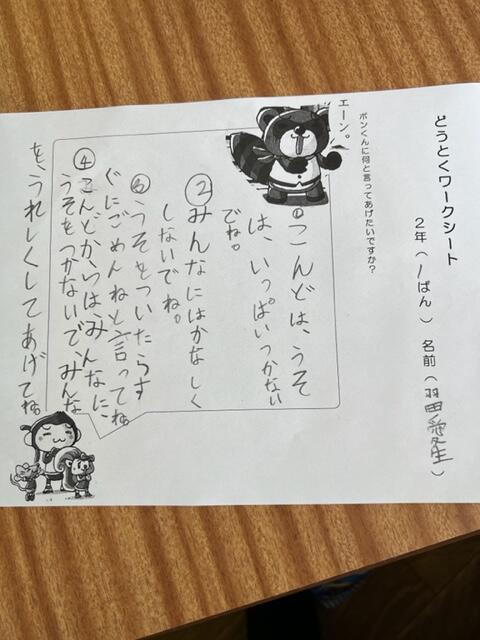 どうとくワークシート
2年（1ぱん）名前（羽田愛生）
ポンくんに何と言ってあげたいですか？
エーン。
①こんどは、うそ
は、いっぱいつかない
でね。
②みんなにはかなしく
しないでね。
③うそをついたらす
ぐにごめんねと言ってね
④こんどからは、みんなに、
うそをつかないで、みんな
を、うれしくしてあげてね。